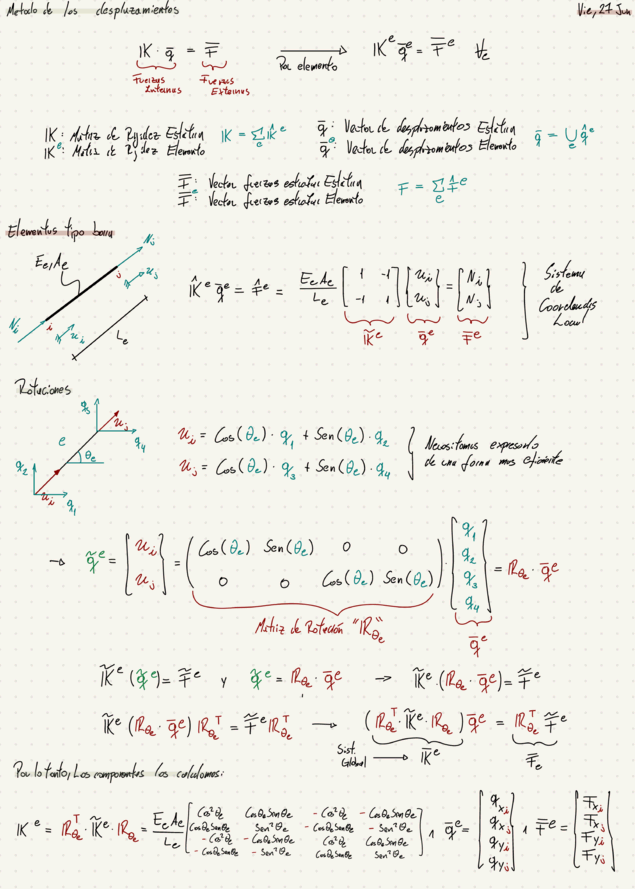 Metodo de los desplazamientos
Vie, 27 Jun
𝕂 · q̄ = F̄ ⟶ 𝕂ᵉ q̄ᵉ = F̄ᵉ ∀e
Por elemento
Fuerzas Internas Fuerzas Externas
𝕂 : Matriz de Rigidez Estática 𝕂 = Σₑ 𝕂̂ᵉ
𝕂ᵉ : Matriz de Rigidez Elemento
q̄ : Vector de desplazamientos Estática q̄ = ∪ₑ q̂ᵉ
q̄ᵉ : Vector de desplazamientos Elemento
F̄ : Vector fuerzas Estática F = Σₑ F̂ᵉ
F̄ᵉ : Vector fuerzas Elemento
Elementos tipo barra
Nj
Ee, Ae
j
uj
Ni
i
ui
Le
𝕂̂ᵉ q̄ᵉ = F̂ᵉ = EeAe/Le [1 -1; -1 1] [ui; uj] = [Ni; Nj]
𝕂̃ᵉ q̄ᵉ F̄ᵉ
Sistema de Coordenadas Local
Rotaciones
q3
uj
q4
e
θe
q2
ui
q1
ui = Cos(θe) · q1 + Sen(θe) · q2
uj = Cos(θe) · q3 + Sen(θe) · q4
Necesitamos expresarlo
de una forma mas eficiente
→ q̃ᵉ = [ui; uj] = (Cos(θe) Sen(θe) 0 0; 0 0 Cos(θe) Sen(θe)) · [q1; q2; q3; q4] = ℝθe · q̄ᵉ
Matriz de Rotación "ℝθe"
q̄ᵉ
𝕂̃ᵉ (q̃ᵉ) = F̃ᵉ y q̃ᵉ = ℝθe · q̄ᵉ → 𝕂̃ᵉ · (ℝθe · q̄ᵉ) = F̃ᵉ
𝕂̃ᵉ (ℝθe · q̄ᵉ) ℝθeᵀ = F̃ᵉ ℝθeᵀ → (ℝθeᵀ · 𝕂̃ᵉ · ℝθe) q̄ᵉ = ℝθeᵀ F̃ᵉ
Sist. Global → 𝕂̄ᵉ F̄e
Por lo tanto, Los componentes los calculamos:
𝕂ᵉ = ℝθeᵀ · 𝕂̃ᵉ · ℝθe = EeAe/Le [Cos²θe CosθeSenθe -Cos²θe -CosθeSenθe; CosθeSenθe Sen²θe -CosθeSenθe -Sen²θe; -Cos²θe -CosθeSenθe Cos²θe CosθeSenθe; -CosθeSenθe -Sen²θe CosθeSenθe Sen²θe] ∧ q̄ᵉ = [qxi; qxj; qyi; qyj] ∧ F̄ᵉ = [Fxi; Fxj; Fyi; Fyj]